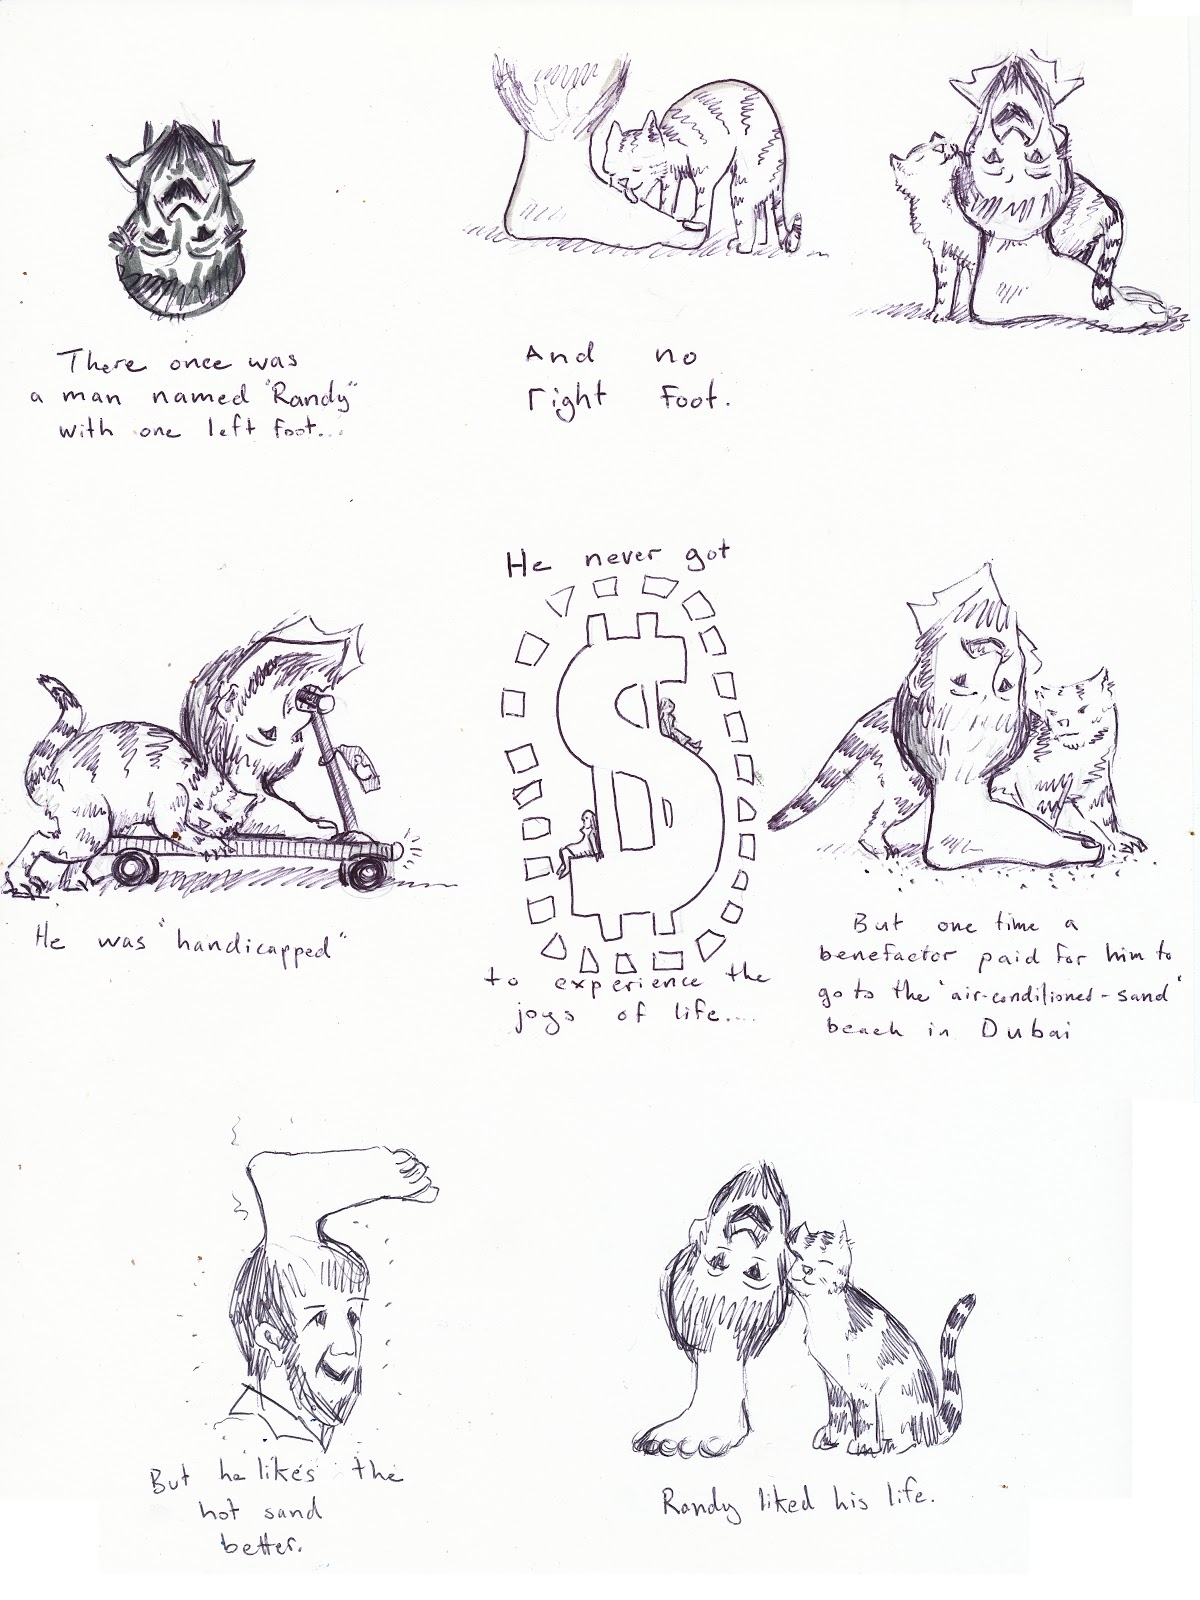 There once was
a man named "Randy"
with one left foot...
And no
right foot.
He was "handicapped"
He never got
to experience the
joys of life....
But one time a
benefactor paid for him to
go to the "air-conditioned-sand"
beach in Dubai
But he likes the
hot sand
better.
Randy liked his life.